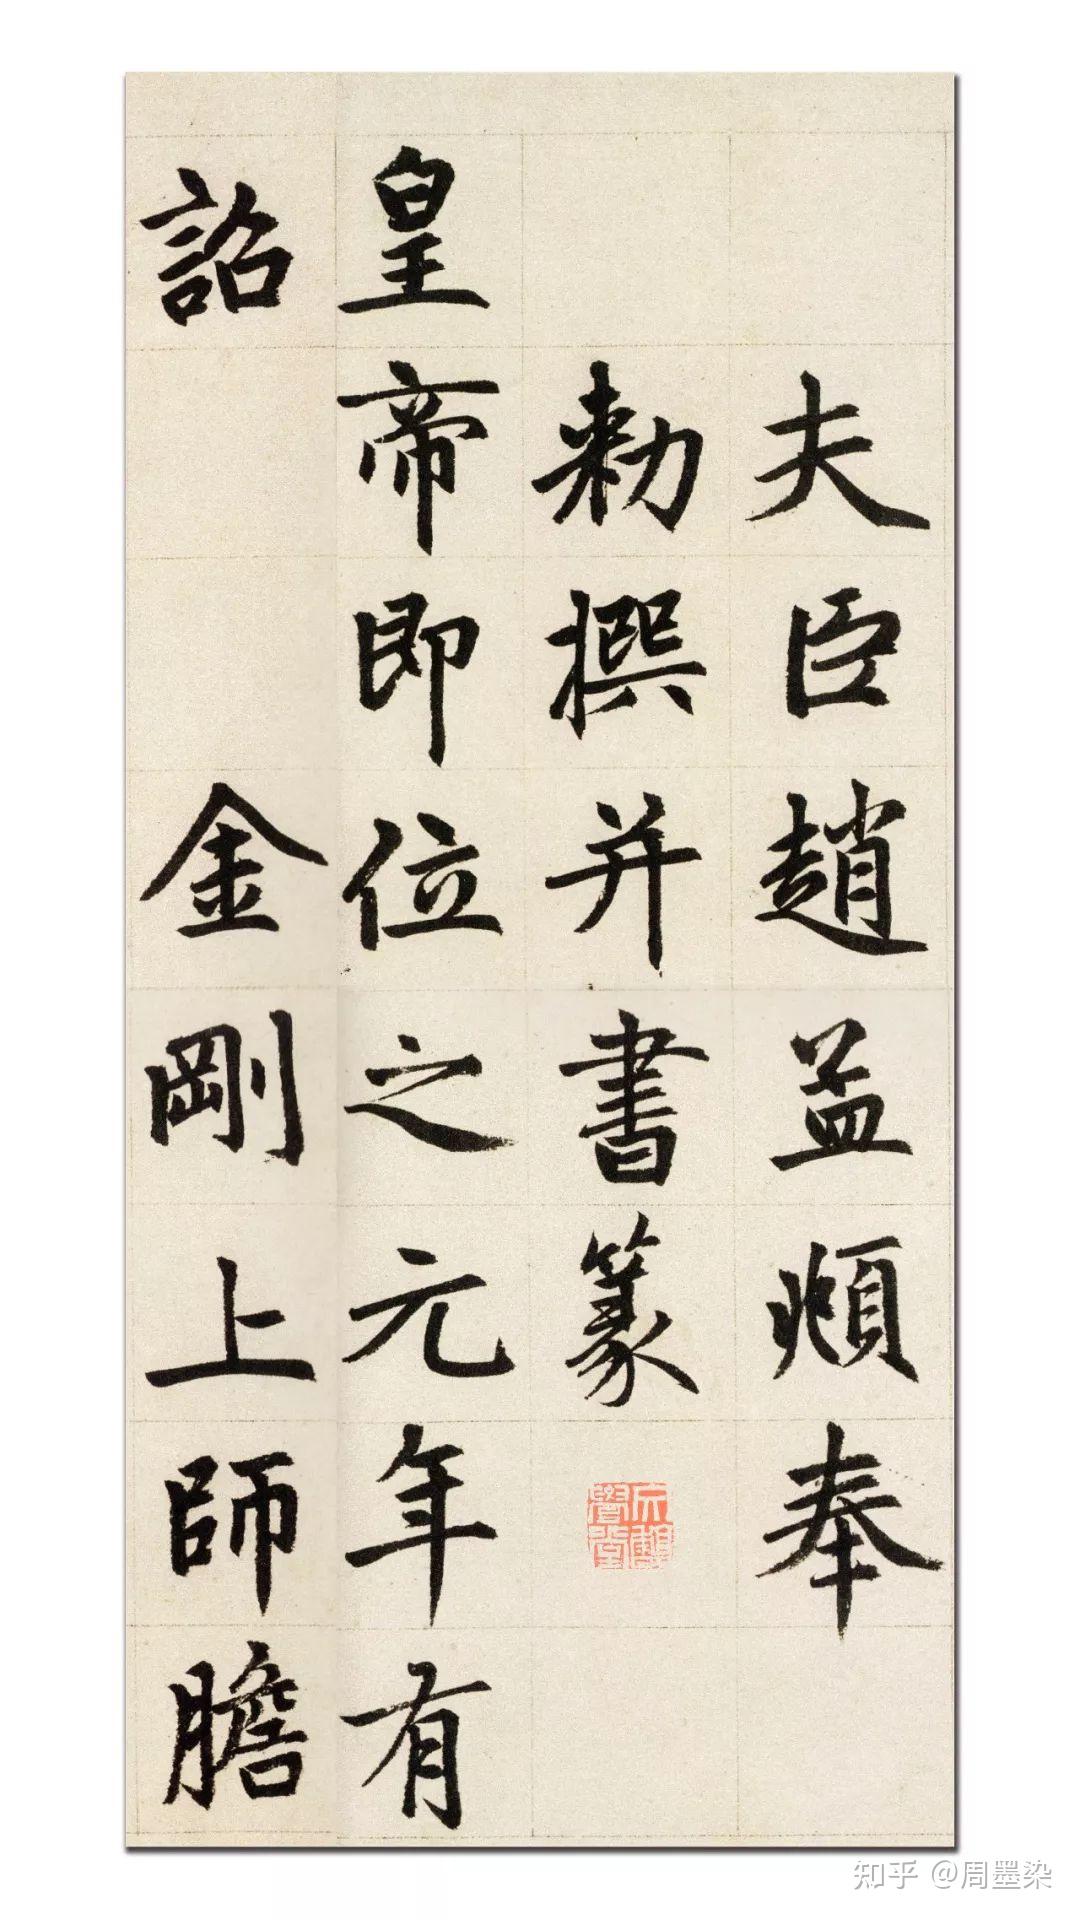 夫臣趙孟頫奉
勑撰并書篆
皇帝即位之元年有
詔金剛上師膽
知乎 @周墨染